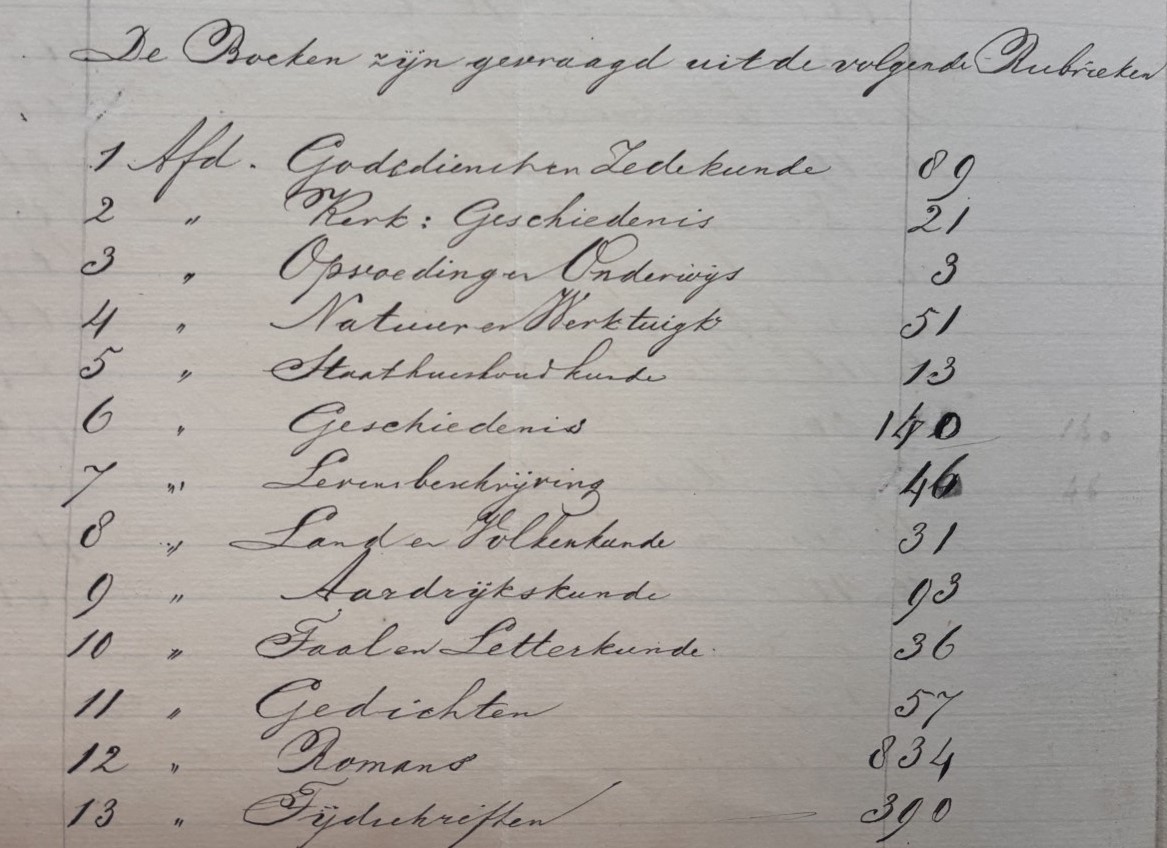 De Boeken zijn gevraagd uit de volgende Rubrieken
1 Afd. Godsdienst en Zedekunde 89
2 „ Kerk: Geschiedenis 21
3 „ Opvoeding en Onderwijs 3
4 „ Natuur en Werktuigk 51
5 „ Staathuishoudkunde 13
6 „ Geschiedenis 140
7 „ Levensbeschrijving 46
8 „ Land en Volkenkunde 31
9 „ Aardrijkskunde 93
10 „ Taal en Letterkunde 36
11 „ Gedichten 57
12 „ Romans 834
13 „ Tijdschriften 390